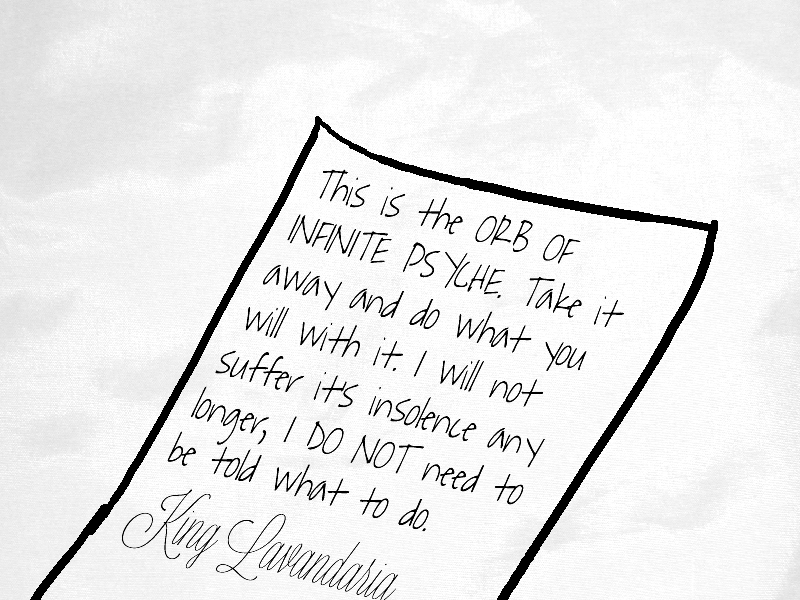 This is the ORB OF
INFINITE PSYCHE. Take it
away and do what you
will with it. I will not
suffer it's insolence any
longer, I DO NOT need to
be told what to do.
King Lavandaria